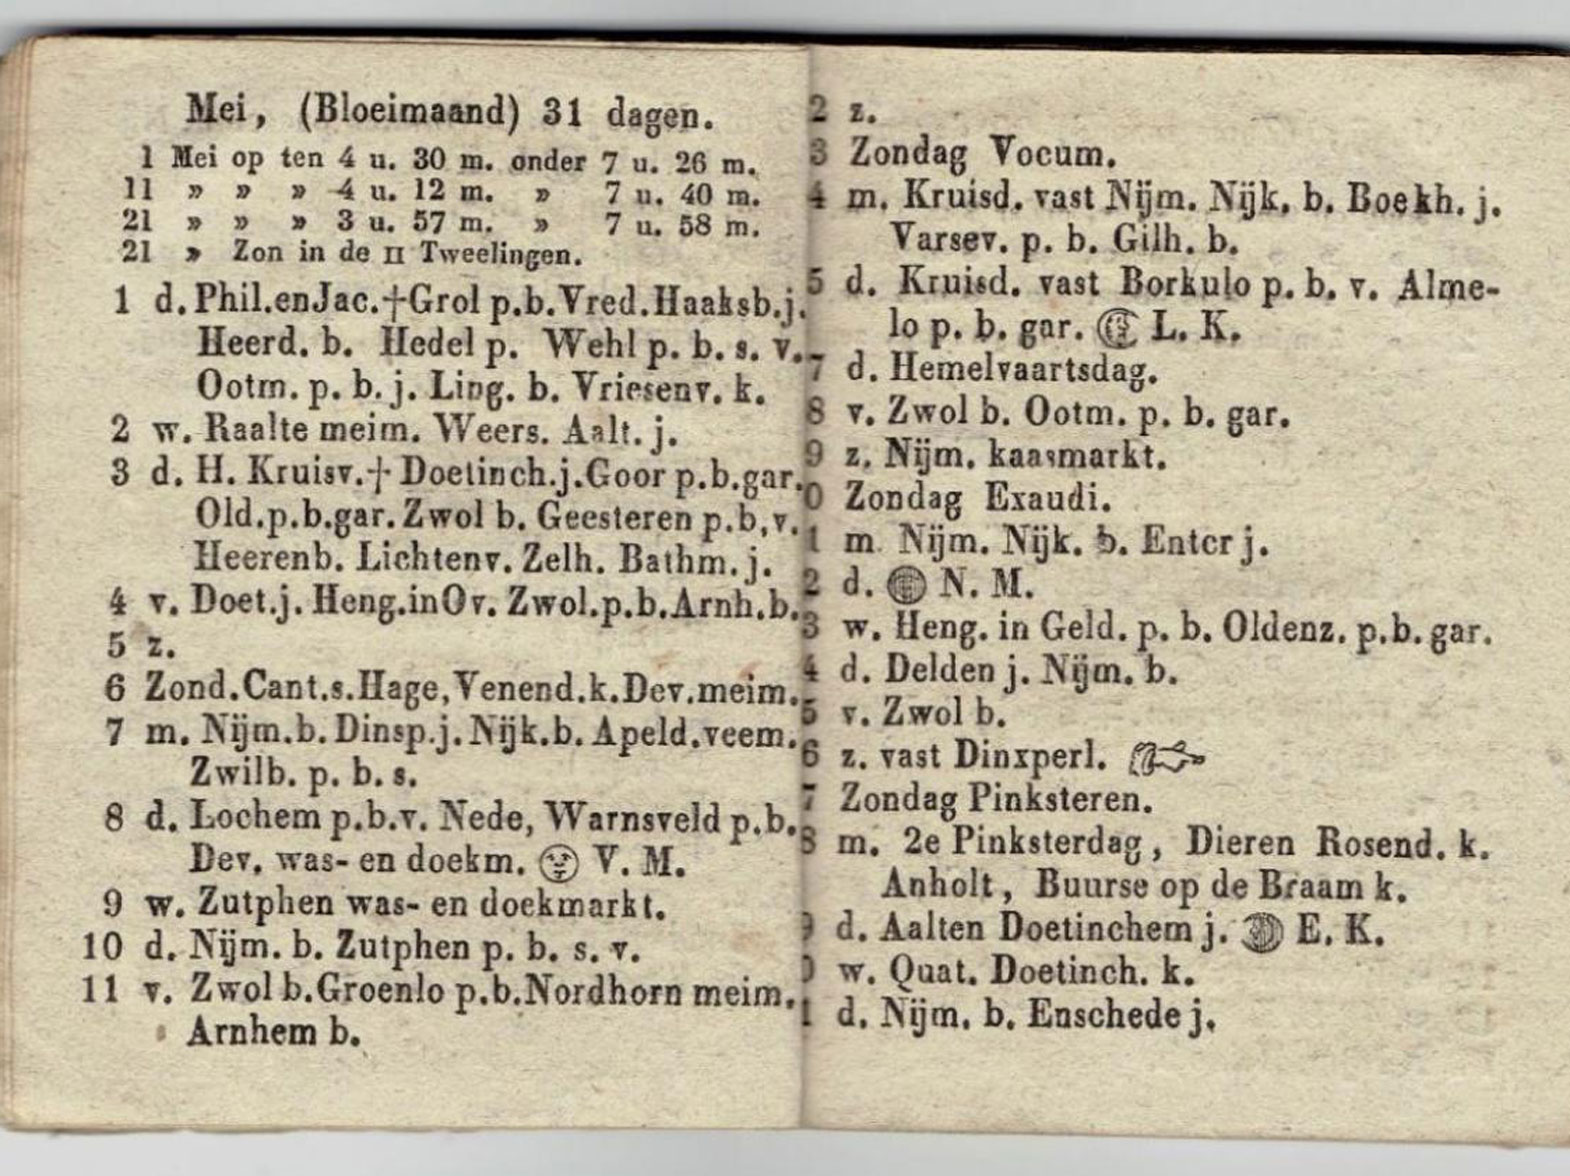 Mei, (Bloeimaand) 31 dagen.
1 Mei op ten 4 u. 30 m. onder 7 u. 26 m.
11 » » » 4 u. 12 m. » 7 u. 40 m.
21 » » » 3 u. 57 m. » 7 u. 58 m.
21 » Zon in de II Tweelingen.
1 d. Phil.enJac.†Grol p.b.Vred.Haaksb.j.
Heerd. b. Hedel p. Wehl p. b. s. v.
Ootm. p. b. j. Ling. b. Vriesenv. k.
2 w. Raalte meim. Weers. Aalt. j.
3 d. H. Kruisv.† Doetinch.j.Goor p.b.gar.
Old.p.b.gar. Zwol b. Geesteren p.b,v.
Heerenb. Lichtenv. Zelh. Bathm. j.
4 v. Doet.j. Heng.inOv. Zwol.p.b.Arnh.b.
5 z.
6 Zond.Cant.s.Hage,Venend.k.Dev.meim.
7 m. Nijm.b. Dinsp.j. Nijk.b. Apeld.veem.
Zwilb. p. b. s.
8 d. Lochem p.b.v. Nede, Warnsveld p.b.
Dev. was- en doekm. V. M.
9 w. Zutphen was- en doekmarkt.
10 d. Nijm. b. Zutphen p. b. s. v.
11 v. Zwol b.Groenlo p.b.Nordhorn meim.
Arnhem b.
2 z.
3 Zondag Vocum.
4 m. Kruisd. vast Nijm. Nijk. b. Boekh. j.
Varsev. p. b. Gilh. b.
5 d. Kruisd. vast Borkulo p. b. v. Alme-
lo p. b. gar. L. K.
7 d. Hemelvaartsdag.
8 v. Zwol b. Ootm. p. b. gar.
9 z. Nijm. kaasmarkt.
0 Zondag Exaudi.
1 m. Nijm. Nijk. b. Enter j.
2 d. N. M.
3 w. Heng. in Geld. p. b. Oldenz. p.b.gar.
4 d. Delden j. Nijm. b.
5 v. Zwol b.
6 z. vast Dinxperl.
7 Zondag Pinksteren.
8 m. 2e Pinksterdag, Dieren Rosend. k.
Anholt, Buurse op de Braam k.
9 d. Aalten Doetinchem j. E. K.
0 w. Quat. Doetinch. k.
1 d. Nijm. b. Enschede j.